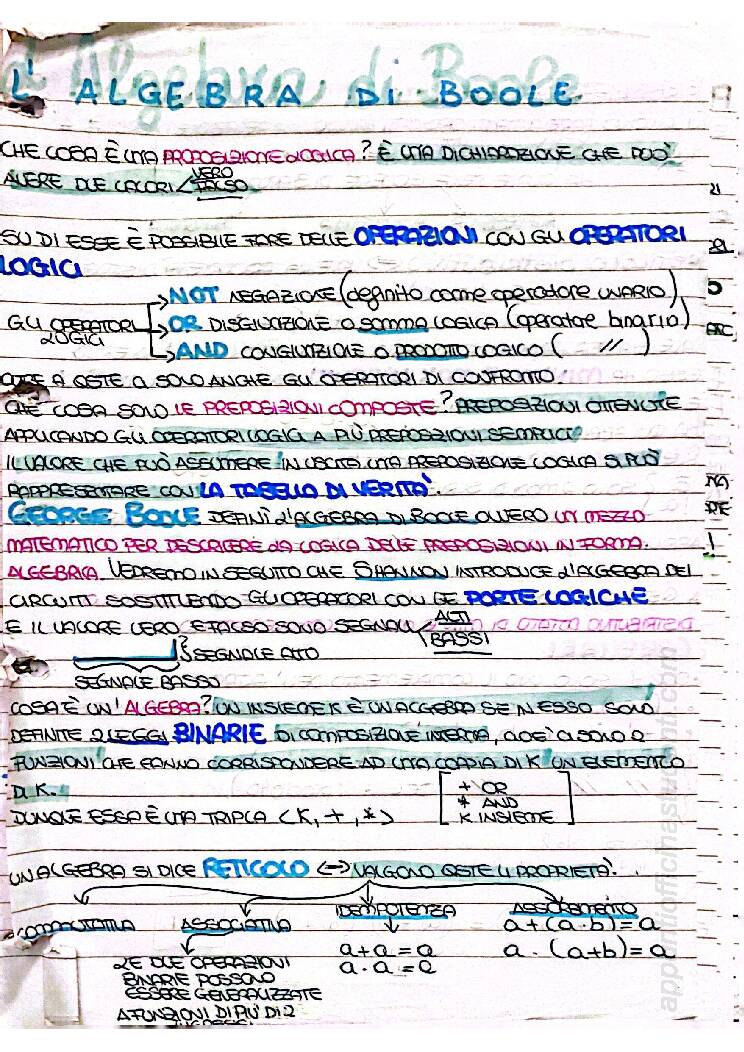 L'ALGEBRA DI BOOLE
CHE COSA È UNA PROPOSIZIONE LOGICA? È UNA DICHIARAZIONE CHE PUÒ
AVERE DUE VALORI VERO
FALSO
SU DI ESSE È POSSIBILE FARE DELLE OPERAZIONI CON GLI OPERATORI
LOGICI
GLI OPERATORI LOGICI
NOT NEGAZIONE (definito come operatore UNARIO)
OR DISGIUNZIONE O SOMMA LOGICA (operatore binario)
AND CONGIUNZIONE O PRODOTTO LOGICO ( // )
OLTRE A QSTE CI SONO ANCHE GLI OPERATORI DI CONFRONTO
CHE COSA SONO LE PREPOSIZIONI COMPOSTE? PREPOSIZIONI OTTENUTE
APPLICANDO GLI OPERATORI LOGICI A PIÙ PREPOSIZIONI SEMPLICI
IL VALORE CHE PUÒ ASSUMERE IN USCITA UNA PREPOSIZIONE LOGICA SI PUÒ
RAPPRESENTARE CON LA TABELLA DI VERITÀ.
GEORGE BOOLE DEFINÌ L'ALGEBRA DI BOOLE OVVERO UN MEZZO
MATEMATICO PER DESCRIVERE LA LOGICA DELLE PREPOSIZIONI IN FORMA
ALGEBRICA. VEDREMO IN SEGUITO CHE SHANNON INTRODUCE L'ALGEBRA DEI
CIRCUITI SOSTITUENDO GLI OPERATORI CON LE PORTE LOGICHE
E IL VALORE VERO E FALSO SONO SEGNALI ALTI
BASSI
SEGNALE ALTO
SEGNALE BASSO
COSA È UN'ALGEBRA? UN INSIEME K È UN ALGEBRA SE IN ESSO SONO
DEFINITE 2 LEGGI BINARIE DI COMPOSIZIONE INTERNA, CIOÈ CI SONO 2
FUNZIONI CHE FANNO CORRISPONDERE AD UNA COPPIA DI K UN ELEMENTO
DI K.
+ OR
* AND
K INSIEME
DUNQUE ESSA È UNA TRIPLA <K, +, *>
UN ALGEBRA SI DICE RETICOLO <-> VALGONO QSTE 4 PROPRIETÀ:
COMMUTATIVA ASSOCIATIVA IDEMPOTENZA ASSORBIMENTO
a + (a · b) = a
a + a = a a · (a+b) = a
a · a = a
LE DUE OPERAZIONI
BINARIE POSSONO
ESSERE GENERALIZZATE
A FUNZIONI DI PIÙ DI 2
appuntiofficinastudenti.com